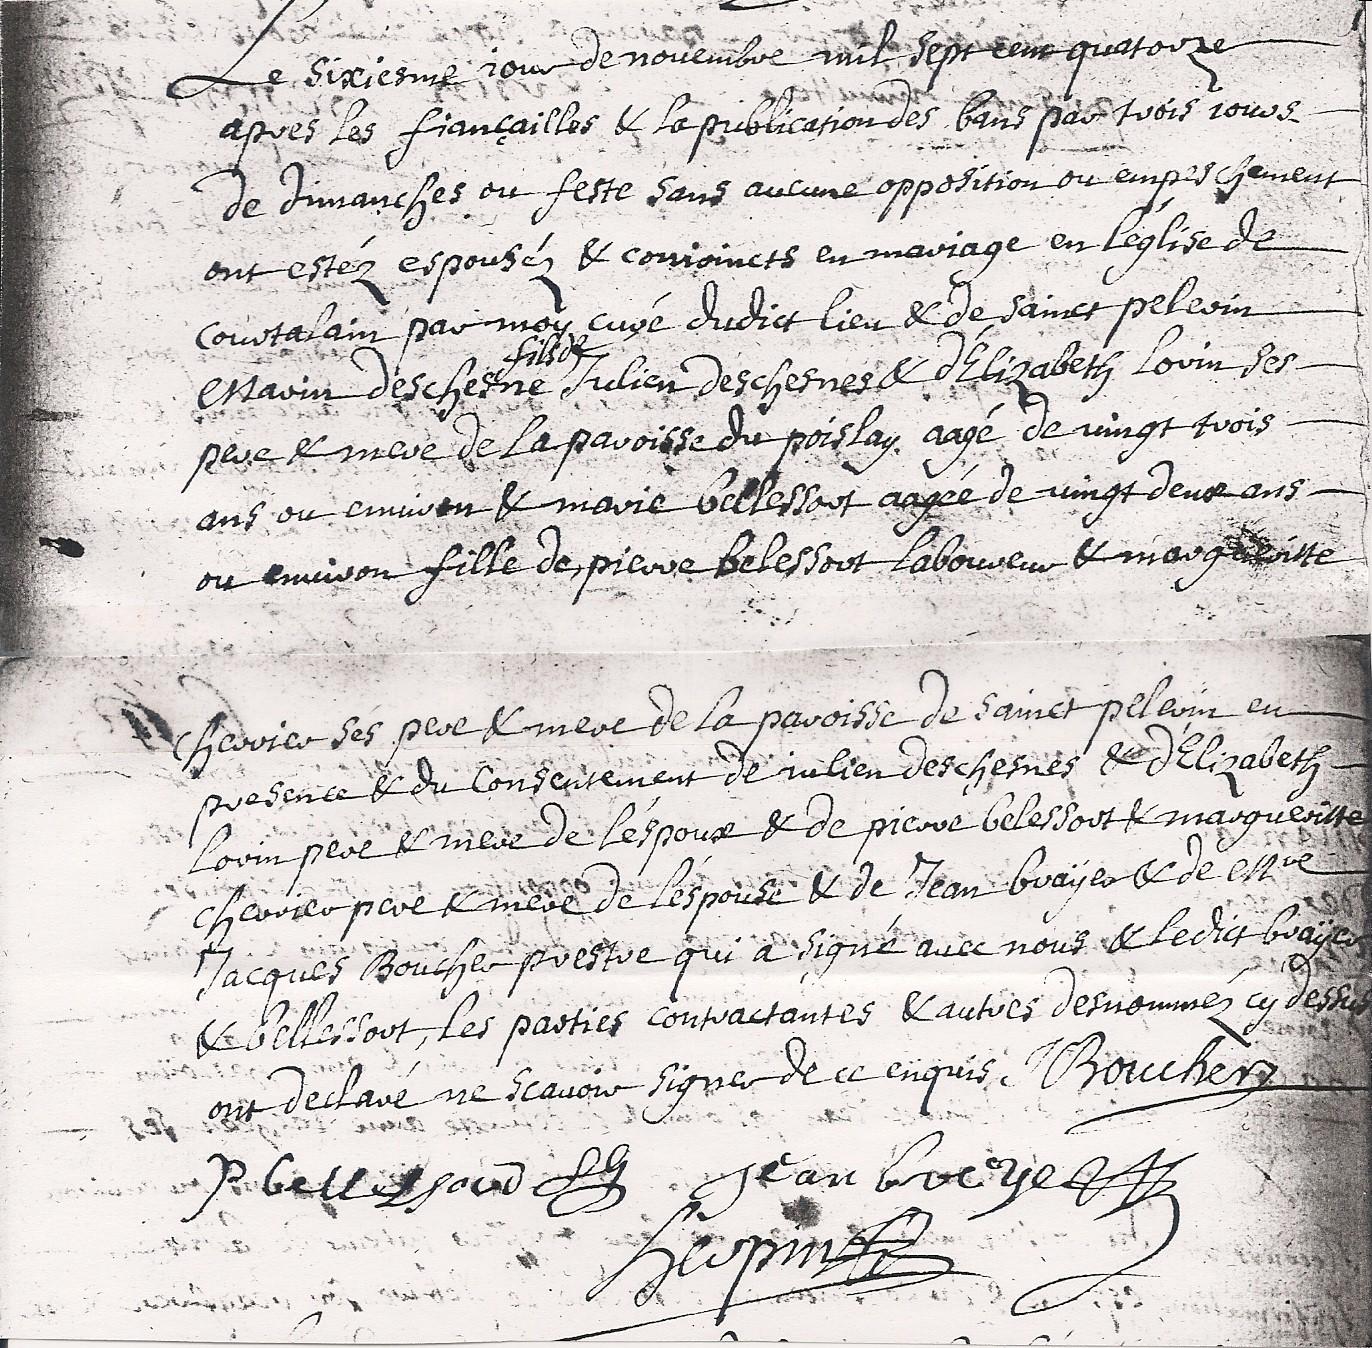 Le sixiesme iour de novembre mil sept cent quatorze
apres les fiançailles & la publication des bans par trois iours
de dimanches ou feste sans aucune opposition ou empeschement
ont estéz espouséz & conioincts en mariage en l'église de
courtalain par moy curé dudict lieu & de sainct pelerin
fils de
Marin deschesne Julien deschesnes & d'Elizabeth lorin ses
pere & mere de la paroisse du poislay aagé de vingt trois
ans ou environ & marie bellessort aagéé de vingt deux ans
ou environ fille de pierre belessort laboureur & margueritte
cherrier ses pere & mere de la paroisse de sainct pelerin en
presence & du consentement de iulien deschesnes & d'Elizabeth
lorin pere & mere de l'éspoux & de pierre belessort & margueritte
cherrier pere & mere de l'éspouse & de Jean brayer & de Mre
Jacques Boucher prestre qui a signé avec nous & ledict brayer
& bellessort, les parties contractantes & autres desnomméz cy dessus
ont declaré ne scavoir signer de ce enquis. J Boucher
P bellessord Jean breyer